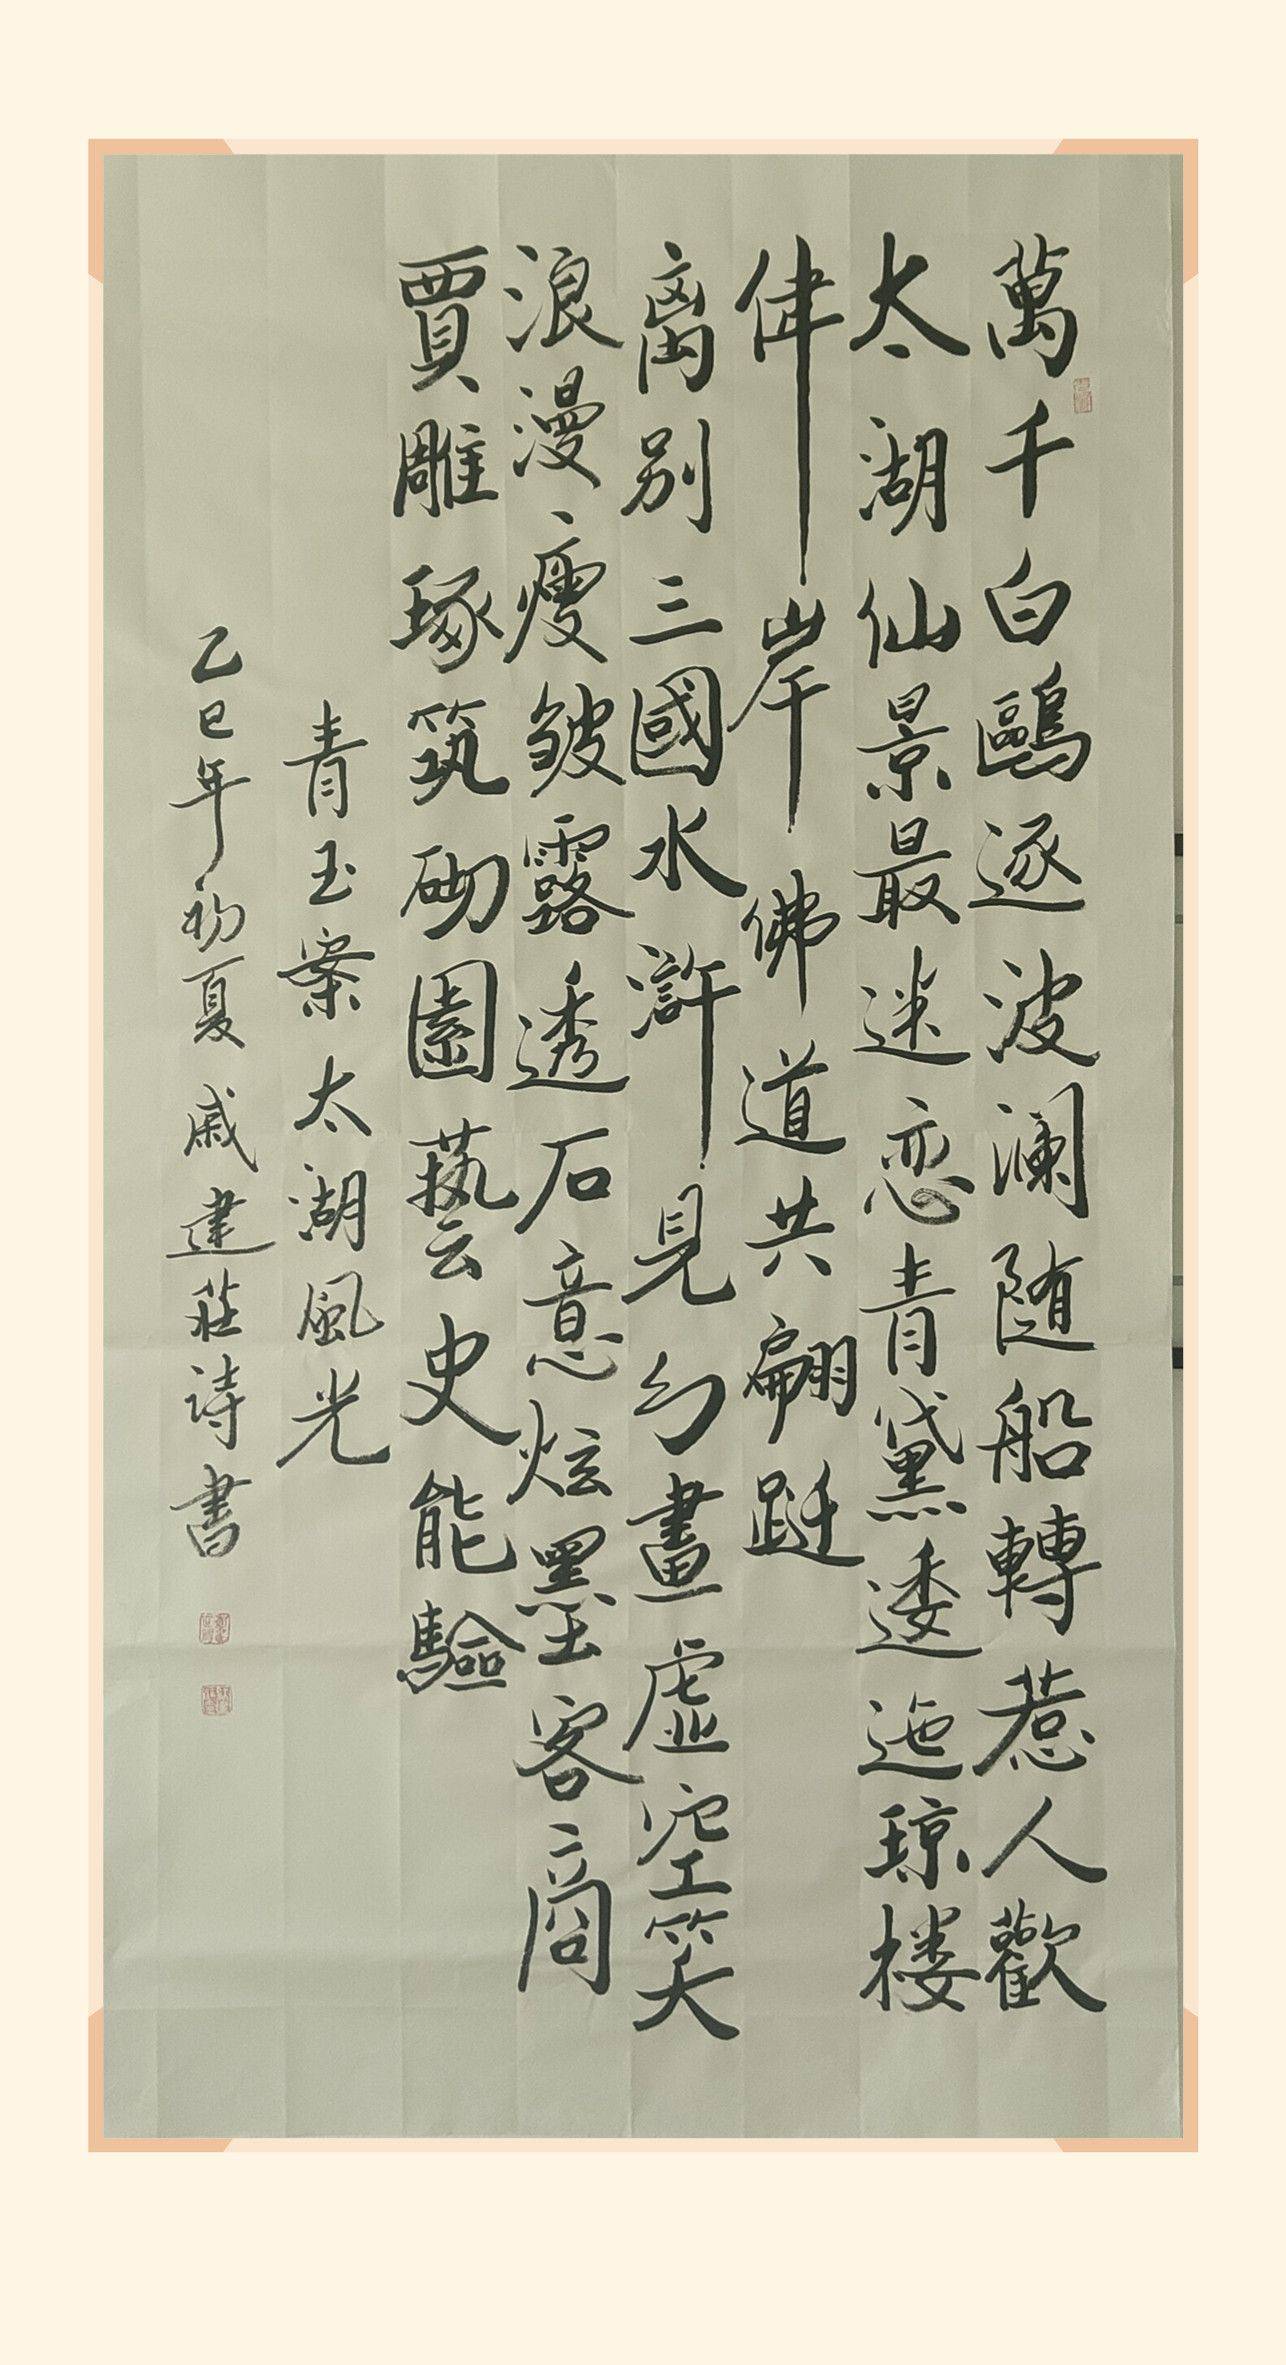 萬千白鷗逐波澜随船轉惹人歡
太湖仙景最迷恋青黛逶迤琼楼
伟岸佛道共翩跹
离别三國水滸見幻畫虛空笑
浪漫瘦皴露透石意炫墨客商
賈雕琢筑砌園藝史能驗
青玉案太湖風光
乙巳年初夏戚建莊诗書